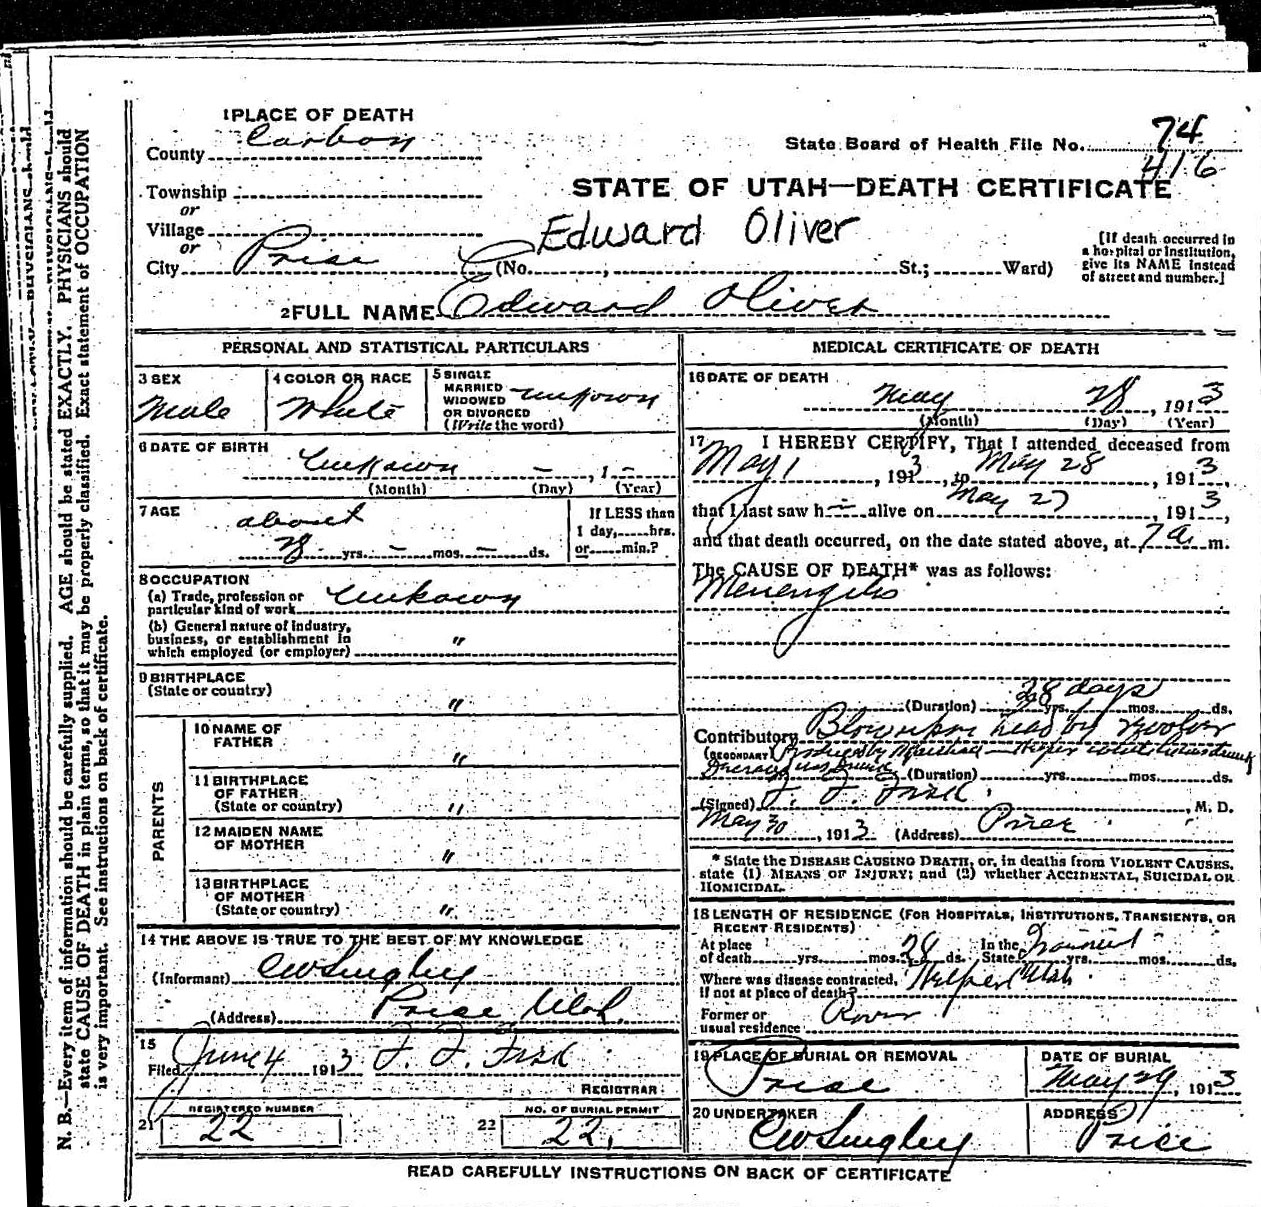 1 PLACE OF DEATH
County Carbon
State Board of Health File No. 74
416
Township
or
Village
or
City Price (No. , St.; Ward)
STATE OF UTAH—DEATH CERTIFICATE
Edward Oliver
[If death occurred in
a hospital or institution,
give its NAME instead
of street and number.]
2 FULL NAME Edward Oliver
PERSONAL AND STATISTICAL PARTICULARS
3 SEX
Male
4 COLOR OR RACE
White
5 SINGLE
MARRIED
WIDOWED
OR DIVORCED
(Write the word)
unkown
6 DATE OF BIRTH
unkown — , 1 —
(Month) (Day) (Year)
7 AGE
about
28 yrs. — mos. — ds.
If LESS than
1 day, hrs.
or min.?
8 OCCUPATION
(a) Trade, profession or
particular kind of work unkown
(b) General nature of industry,
business, or establishment in
which employed (or employer) "
9 BIRTHPLACE
(State or country) "
PARENTS
10 NAME OF
FATHER "
11 BIRTHPLACE
OF FATHER
(State or country) "
12 MAIDEN NAME
OF MOTHER "
13 BIRTHPLACE
OF MOTHER
(State or country) "
14 THE ABOVE IS TRUE TO THE BEST OF MY KNOWLEDGE
(Informant) CW Singley
(Address) Price Utah.
15
Filed June 4 1913 F. F. Fisk
REGISTRAR
21 REGISTERED NUMBER
22
22 NO. OF BURIAL PERMIT
22.
MEDICAL CERTIFICATE OF DEATH
16 DATE OF DEATH
May 28, 1913
(Month) (Day) (Year)
17 I HEREBY CERTIFY, That I attended deceased from
May 1, 1913, to May 28, 1913,
that I last saw h — alive on May 27, 1913,
and that death occurred, on the date stated above, at 7 a m.
The CAUSE OF DEATH* was as follows:
Menengitis
28 days
(Duration) yrs. mos. ds.
Contributory Blow upon head by
(SECONDARY) Produced by Marshall — Helper
(Duration) yrs. mos. ds.
(Signed) F. F. Fisk, M. D.
May 30, 1913 (Address) Price
* State the DISEASE CAUSING DEATH, or, in deaths from VIOLENT CAUSES,
state (1) MEANS OF INJURY; and (2) whether ACCIDENTAL, SUICIDAL OR
HOMICIDAL.
18 LENGTH OF RESIDENCE (FOR HOSPITALS, INSTITUTIONS, TRANSIENTS, OR
RECENT RESIDENTS)
At place
of death yrs. mos. 28 ds. In the
State yrs. mos. ds.
Where was disease contracted,
if not at place of death? Helper Utah
Former or
usual residence
19 PLACE OF BURIAL OR REMOVAL
Price
DATE OF BURIAL
May 29, 1913
20 UNDERTAKER
CW Singley
ADDRESS
Price
READ CAREFULLY INSTRUCTIONS ON BACK OF CERTIFICATE
N. B.—Every item of information should be carefully supplied. AGE should be stated EXACTLY. PHYSICIANS should
state CAUSE OF DEATH in plain terms, so that it may be properly classified. Exact statement of OCCUPATION
is very important. See instructions on back of certificate.